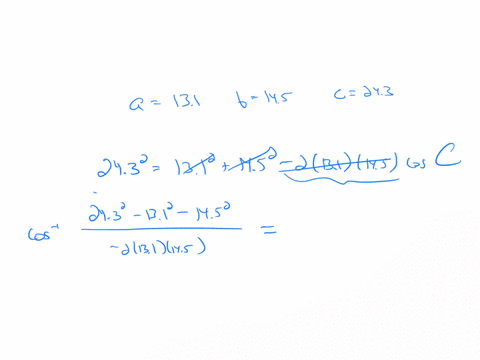 a = 13.1 b = 14.5 c = 24.3
24.3² = 13.1² + 14.5² - 2(13.1)(14.5) cos C
cos⁻¹ 24.3² - 13.1² - 14.5² =
-2(13.1)(14.5)